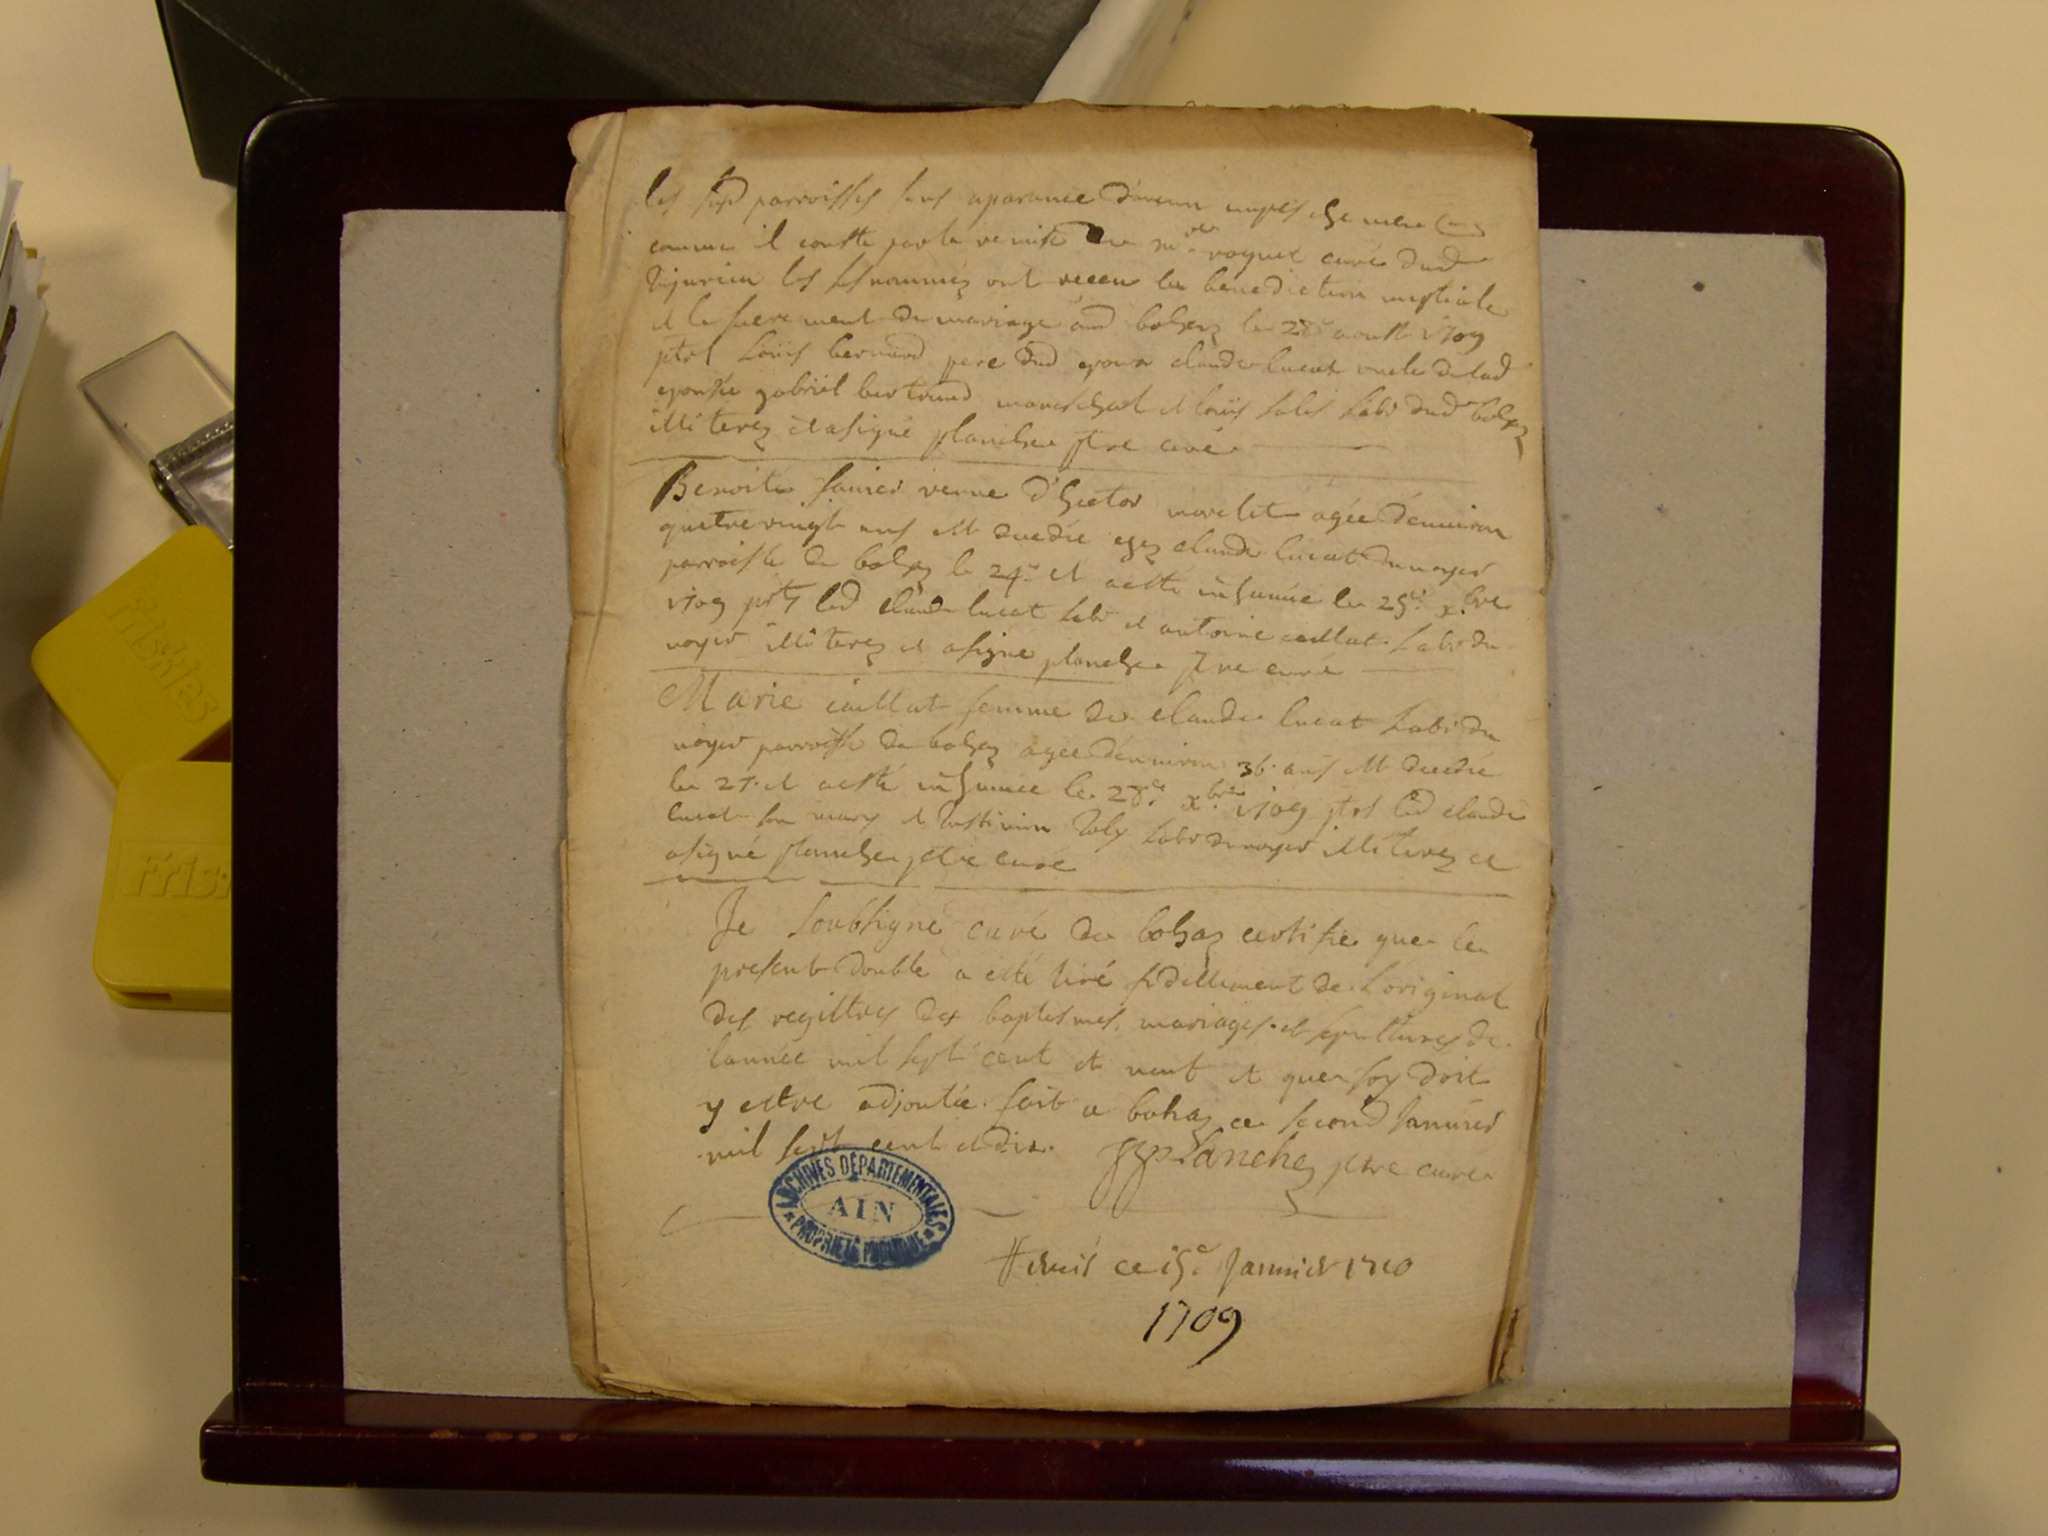 les susd parroisses sans aparance d'aucun
comme il conste par la remise de mre roquet curé dud
Jujurieu les susnommez ont receu la benediction nuptiale
et le sacrement de mariage aud bohaz le aoust 1709
pnts Loüis bernard pere dud epoux claude lucat oncle de lad
epouse gabriel bertrand mareschal et loüis labr dud bohaz
illiterez et a signé planche ptre curé
Benoite janier veuve d'hector agée d'enuiron
quatrevingt ans est decedée chez claude lucat du noyer
parroisse de bohaz le 24e et a esté inhumée le 25e xbre
1709 pnts led claude lucat labr et antoine caillat labr du
noyer illiterez et a signé planche ptre curé
Marie caillat femme de claude lucat labr du
noyer parroisse de bohaz agee d'enuiron 36 ans est decedée
le 27e et a esté inhumée le 28e xbre 1709 pnts led claude
lucat son mary et Joly labr du noyer illiterez et
a signé planche ptre curé
Je soubsigné curé de bohaz certifie que le
present double a esté tiré fidellement de l'original
des registres des baptesmes, mariages et sepultures de
l'année mil sept cent et neuf et que foy doit
y estre adjoutée fait a bohaz ce second Januier
mil sept cent et dix. Planche ptre curé
ARCHIVES DÉPARTEMENTALES
AIN
PROPRIÉTÉ PUBLIQUE
ce 15e Januier 1710
1709
Friskies
Fris